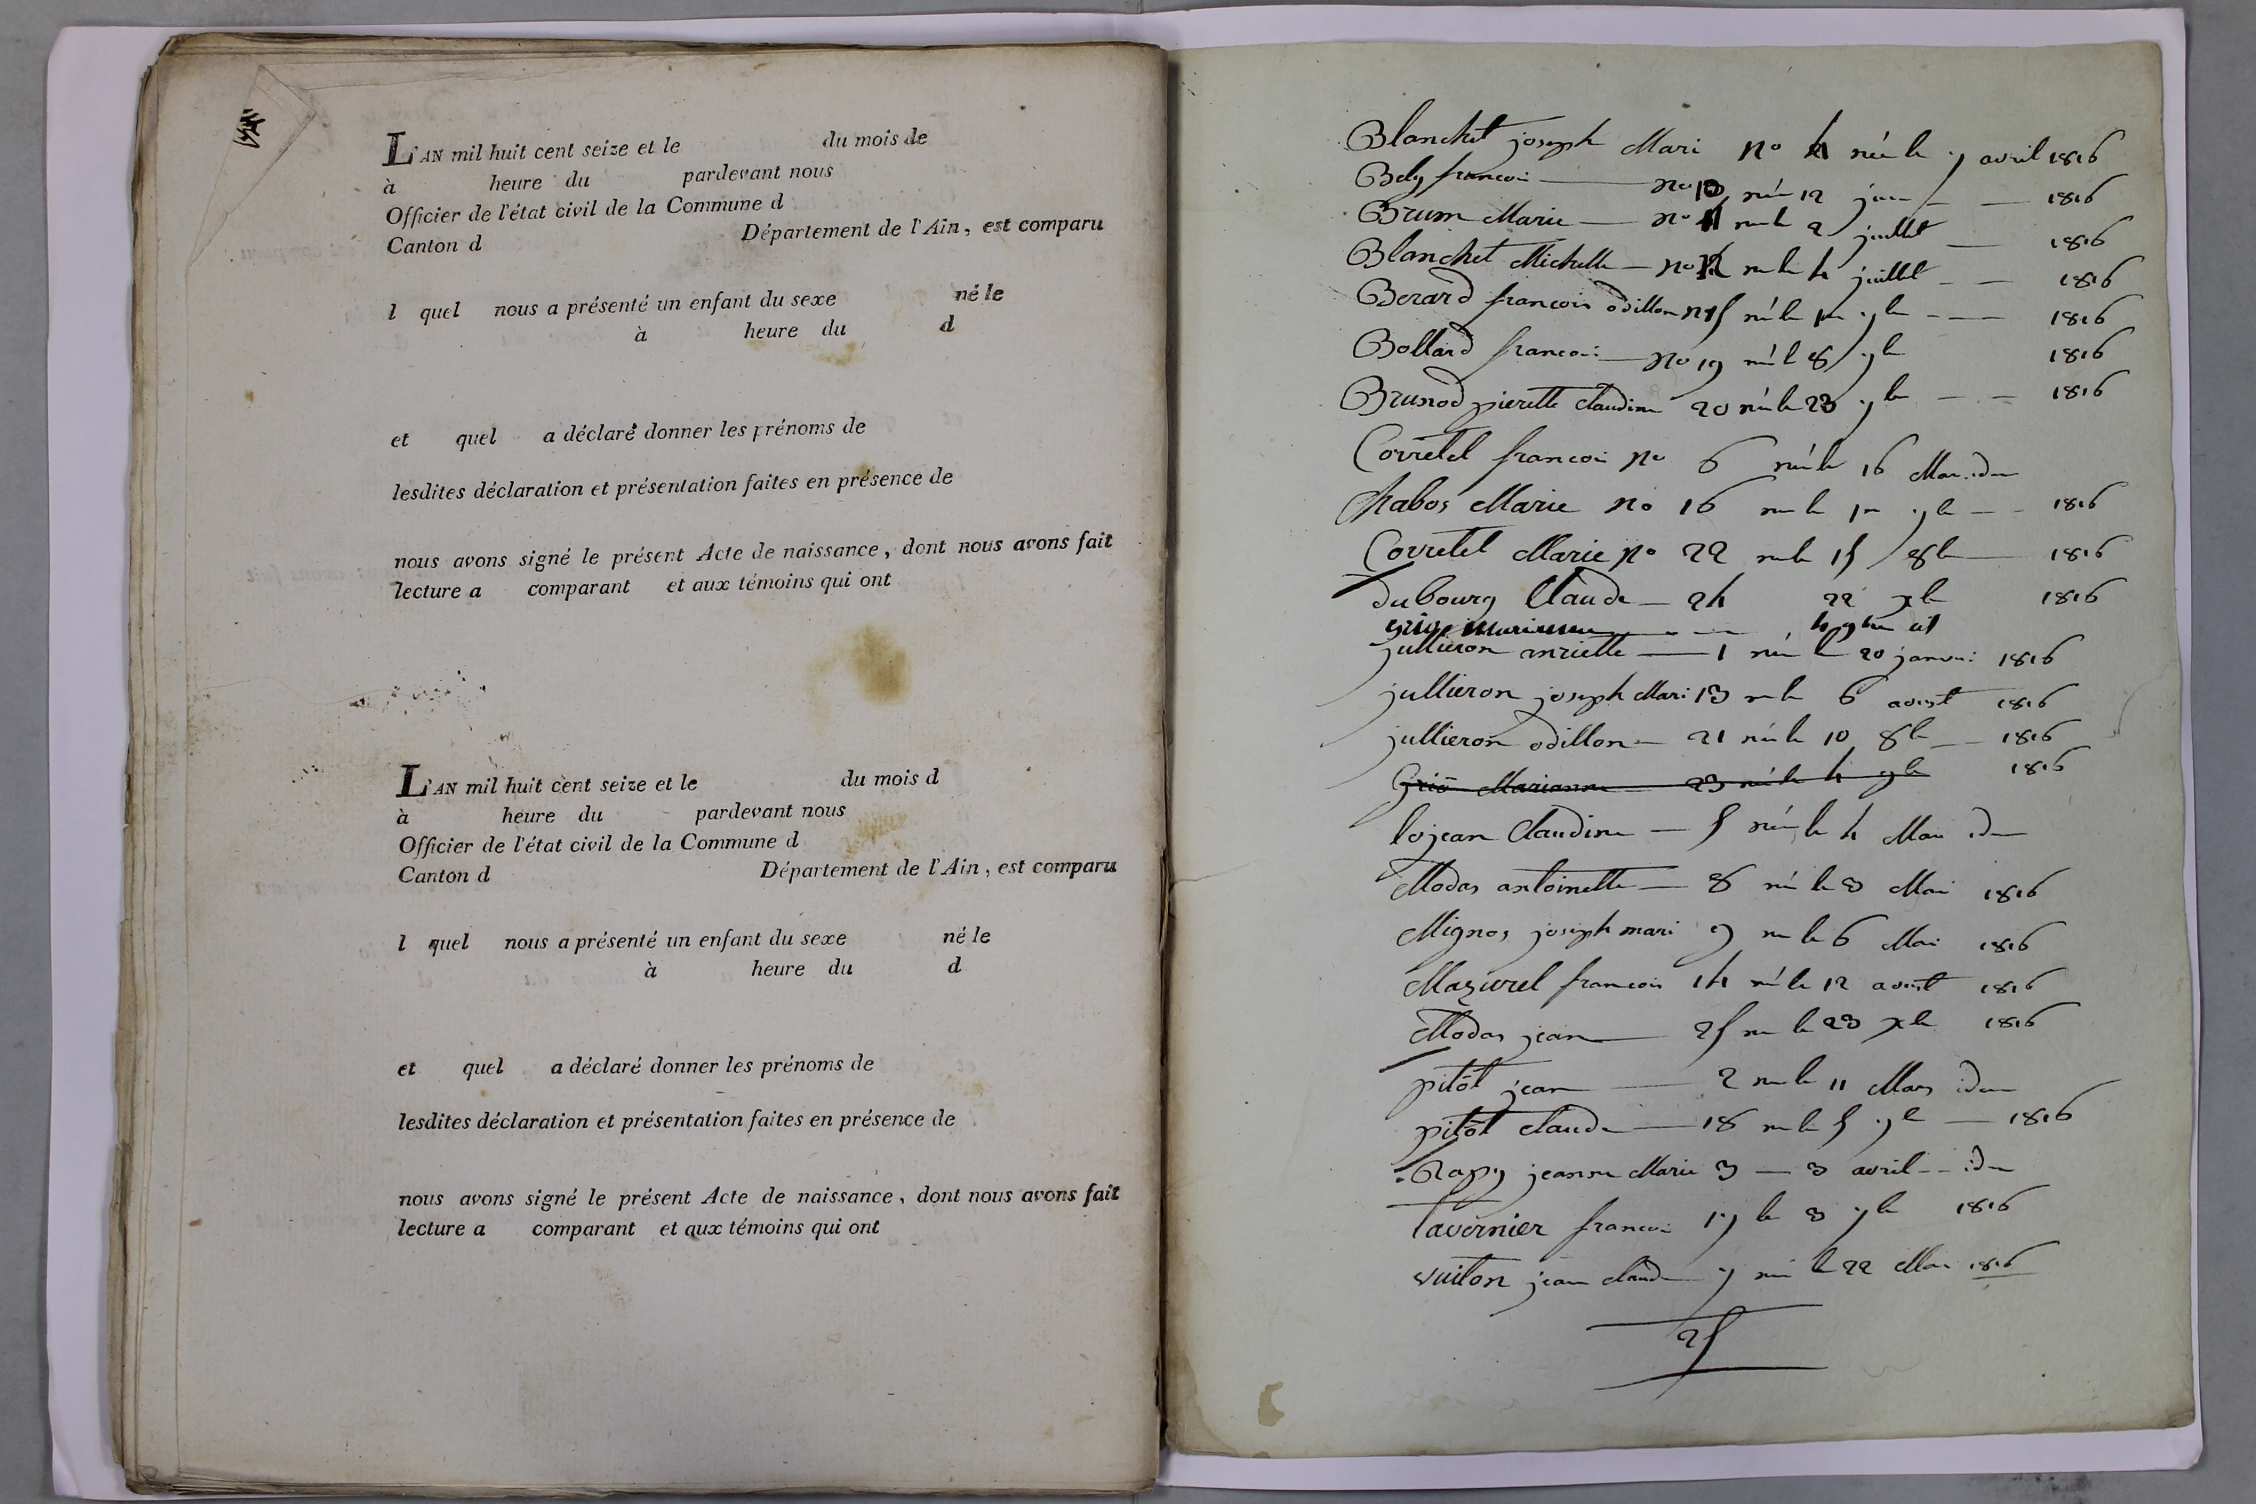 L'AN mil huit cent seize et le du mois de
à heure du pardevant nous
Officier de l'état civil de la Commune d
Canton d Département de l'Ain, est comparu
l quel nous a présenté un enfant du sexe né le
à heure du d
et quel a déclaré donner les prénoms de
lesdites déclaration et présentation faites en présence de
nous avons signé le présent Acte de naissance, dont nous avons fait
lecture a comparant et aux témoins qui ont
L'AN mil huit cent seize et le du mois d
à heure du pardevant nous
Officier de l'état civil de la Commune d
Canton d Département de l'Ain, est comparu
l quel nous a présenté un enfant du sexe né le
à heure du d
et quel a déclaré donner les prénoms de
lesdites déclaration et présentation faites en présence de
nous avons signé le présent Acte de naissance, dont nous avons fait
lecture a comparant et aux témoins qui ont
Blanchet joseph Mari no 4 née le 7 avril 1816
Bely francoi — no 10 né 12 juin — 1816
Brum Marie — no 11 né le 2 juillet — 1816
Blanchet Michelle — no 12 né le 4 juillet — 1816
Berard francois odillon no 15 né le 1er 7be — 1816
Bollard francoi — no 19 né le 8 7be 1816
Brunod pierette claudine 20 née le 23 7be — 1816
Corretel francoi no 6 né le 16 Mai idem
Chabos Marie no 16 née le 1er 7be — 1816
Corretel Marie no 22 née le 15 8be — 1816
dubourg Claude — 24 22 xbe 1816
grio Marianne — 4 9bre
jullieron anriette — 1 née le 20 janvier 1816
jullieron joseph Mari 13 né le 6 aoust 1816
jullieron odillon — 21 né le 10 8be — 1816
Grio Marianne — 23 née le 4 9be 1816
lojean Claudine — 5 née le 4 Mai idem
Modas antoinette — 8 né le 3 Mai 1816
Mignos joseph mari 9 né le 6 Mai 1816
Mazurel francois 14 né le 12 aoust 1816
Modas jean — 25 né le 23 xbe 1816
pitôt jean — 2 né le 11 Mars idem
pitôt claude — 18 né le 5 7be — 1816
Rapy jeanne Marie 3 — 3 avril — idem
tavernier francoi 17 le 3 7be 1816
vuiton jean claude 7 né le 22 Mai 1816
25